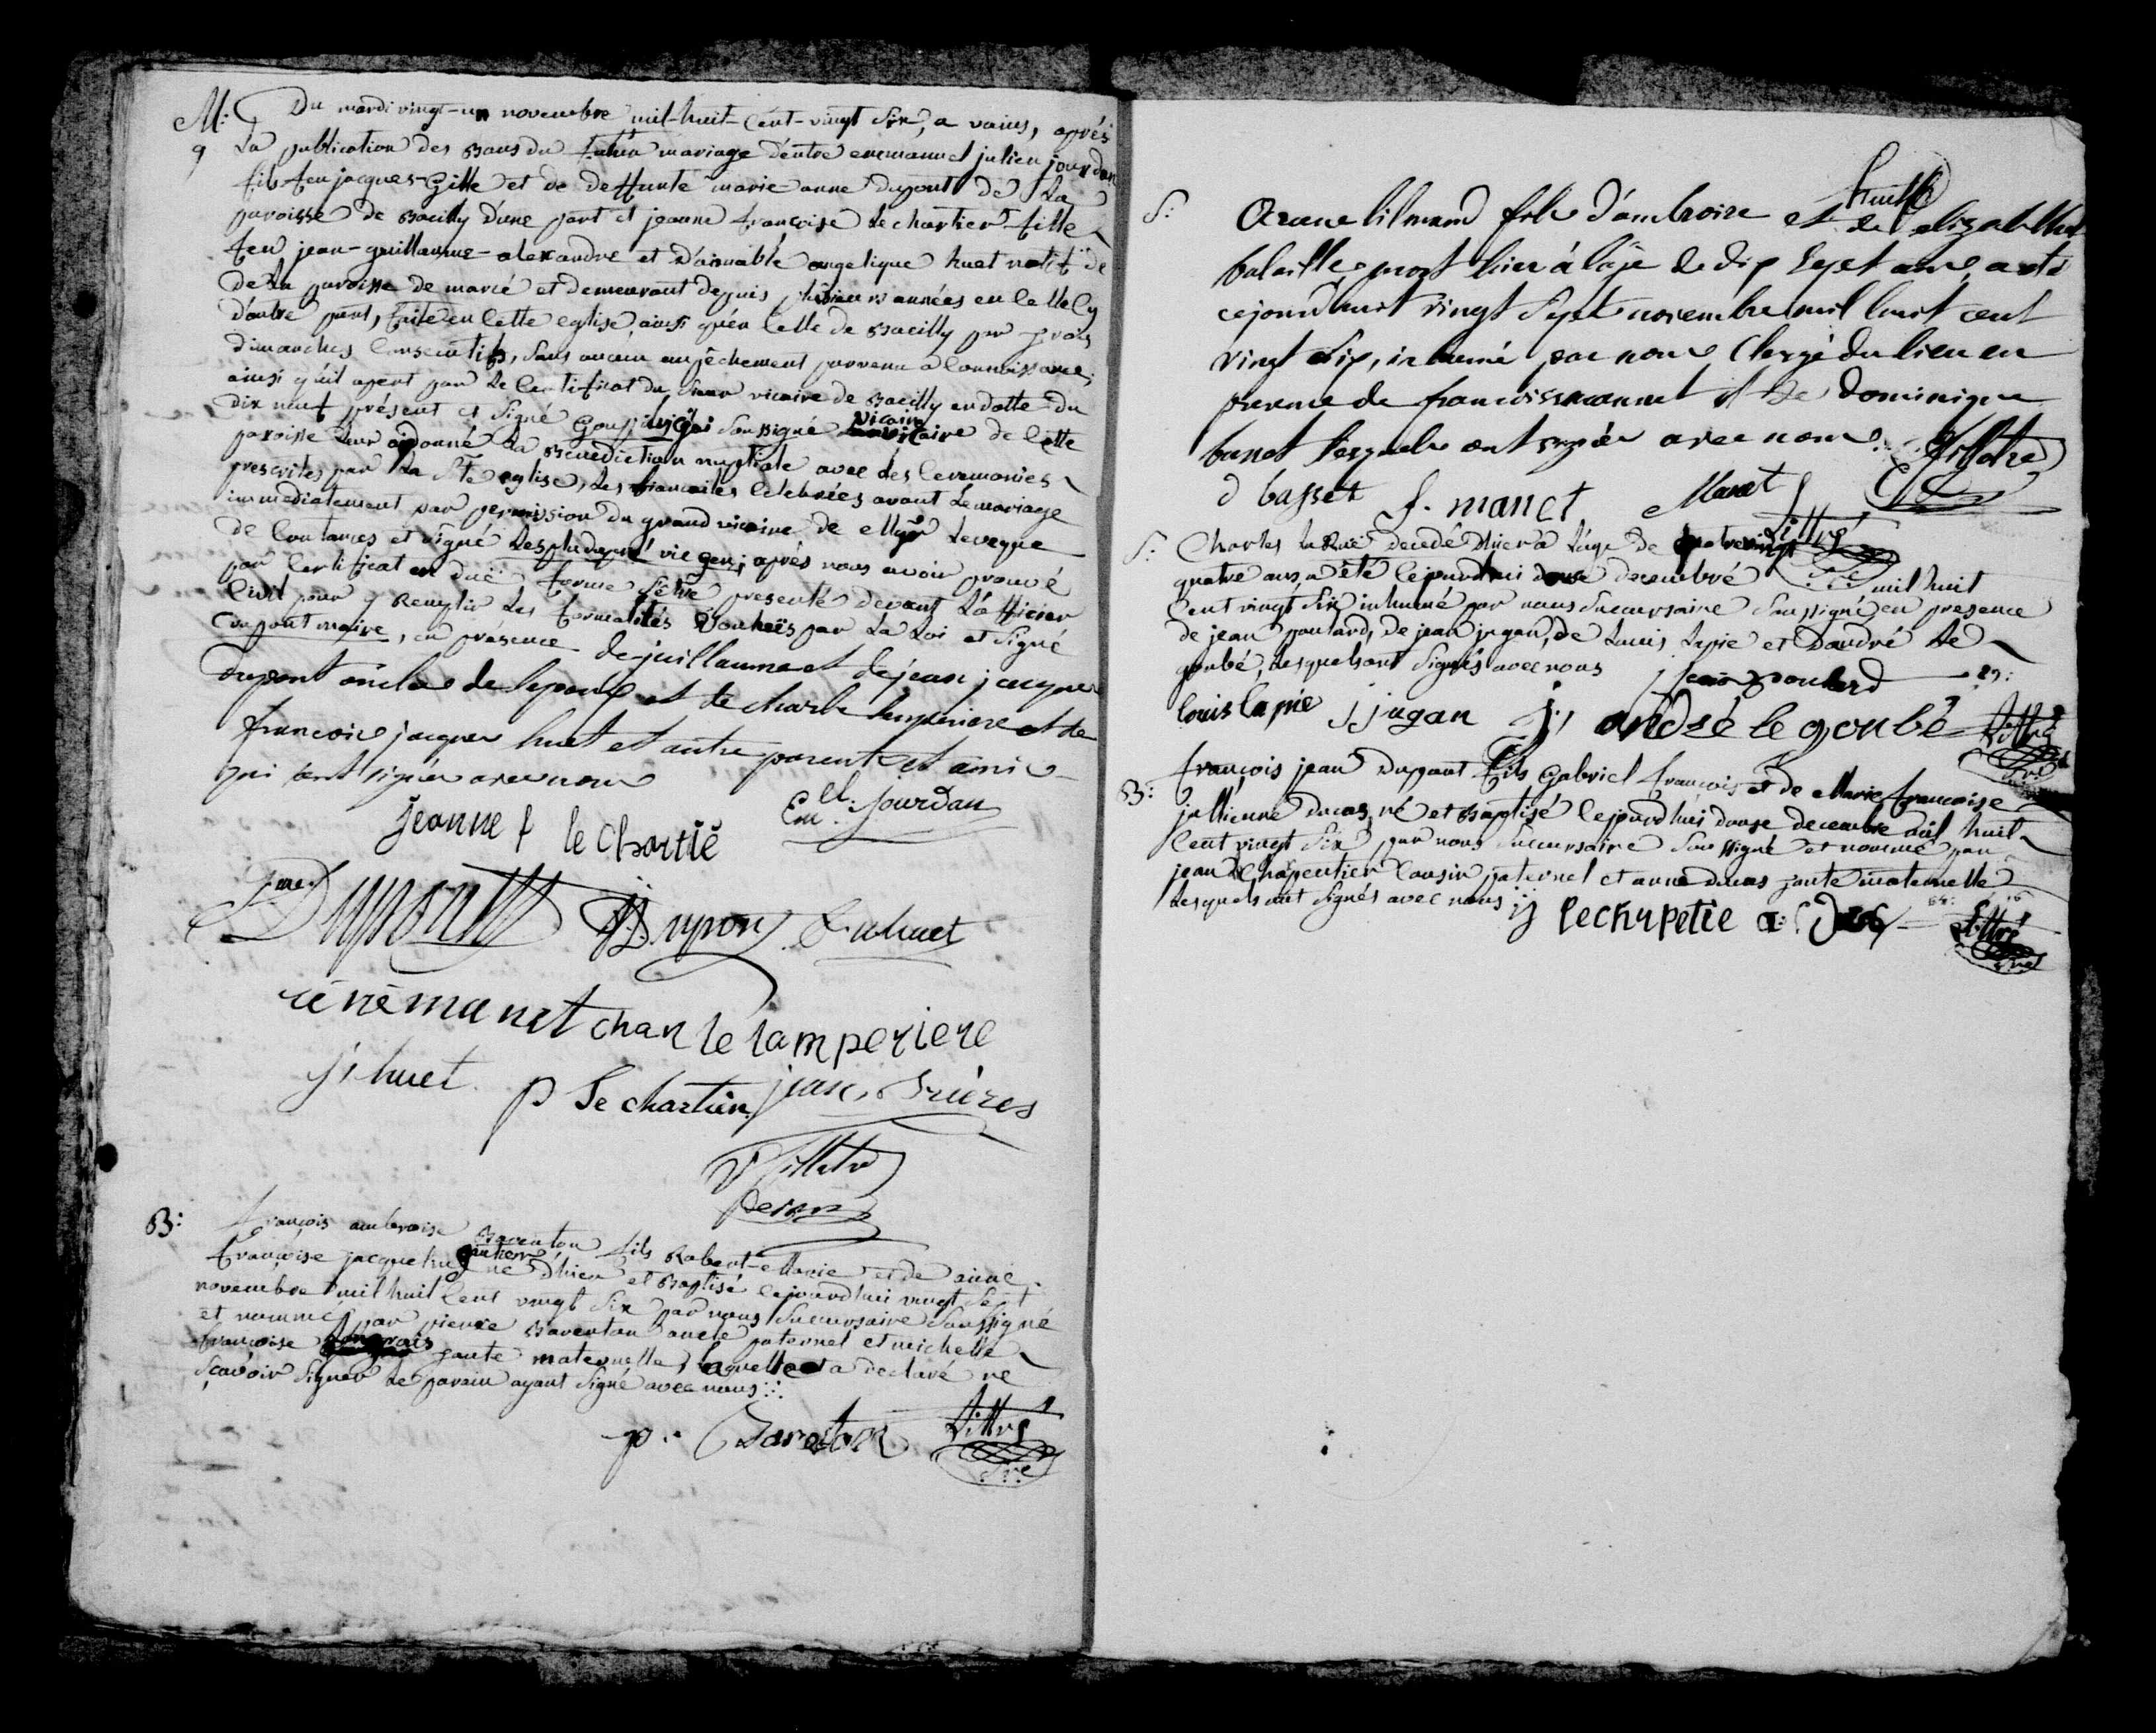 M: Du mardi vingt-un novembre mil-huit-cent-vingt six, a vains, aprés
9 La publication des Bans du futur mariage d'entre emmanuel julien jourdan
fils feu jacques-Gille et de deffunte marie anne dupont de La
paroisse de Bacilly d'une part et jeanne françoise Le chartier fille
feu jean-guillaume-alexandre et d'aimable angelique huet natif de
de La paroisse de marcé et demeurant depuis plusieurs années en celle cy
d'autre part, faite en cette eglise, ainsi qu'en celle de Bacilly par trois
dimanches consecutifs, sans aucun empêchement parvenu a connoissance,
ainsi qu'il apert par Le certificat du sieur vicaire de Bacilly en datte du
dix neuf présent et signé soussigné vicaire de cette
paroisse Leur ai donné La Bénédiction nuptiale avec des Ceremonies
prescrites par La Ste eglise, Les fiancailes célebrées avant Le mariage
immédiatement par permission du grand vicaire de Mgr Leveque
de Coutances et signé vic gen; aprés nous avoir prouvé
par Certificat en duë forme s'etre presenté devant L'officier
Civil pour y Remplir Les formalités par La Loi et signé
Dupont maire, en présence de guillaume et de jean jacques
dupont oncles de lepoux et de charle lamperiere et de
francois jacques huet et autre parents et amis
qui ont signés avec nous
jeanne f le Chartié Em.el: Jourdan
Dupont JJ Dupont huet
réné manet charle lamperiere
j j huet. p Le chartier jean frieres
Littré
B: françois ambroise Baventon fils Robert-Marie et de aimé
françoise jacqueline gautier né d'hier et Baptisé cejourd'hui vingt sept
novembre mil huit cent vingt six par nous succursaire soussigné
et nommés par pierre Baventon oncle paternel et michelle
françoise tante maternelle, laquelle a declaré ne
sçavoir signer Le parain ayant signé avec nous
p. Baventon Littré
S: lilmand fils d'ambroise et de elizabeth
bataille mort hier à lâge de dix sept ans, a eté
cejourd'huit vingt sept novembre mil huit cent
vingt six, inhumé par nous Clergé du lieu en
presence de francois manet et de dominique
basset lesquels ont signés avec nous
d basset f. manet Manet Littré
S: Charles La Ruë decedé d'hier a L'age de quatrevingt
quatre ans, a été cejourd'hui douze decembre mil huit
cent vingt six inhumé par nous succursaire soussigné en presence
de jean poulard, de jean jugan, de Louis Lapie et d'andré Le
goubé, Lesquels ont signés avec nous jean poulard
louis lapie j jugan andré le goubé Littré
B: françois jean Dupont fils Gabriel françois et de Marie françoise
jullienne ducas, né et Baptisé cejourd'hui douze decembre mil huit
cent vingt six par nous succursaire soussigné et nommé par
jean Le Chapentier cousin paternel et anne ducas tante maternelle
Lesquels ont signés avec nous
j lechapetie a: Littré